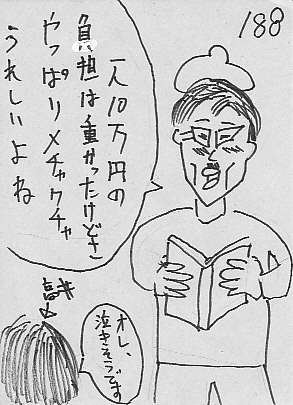 188
一人10万円の
負担は重かったけどさ
やっぱりメチャクチャ
うれしいよね
オレ、
泣きそうです